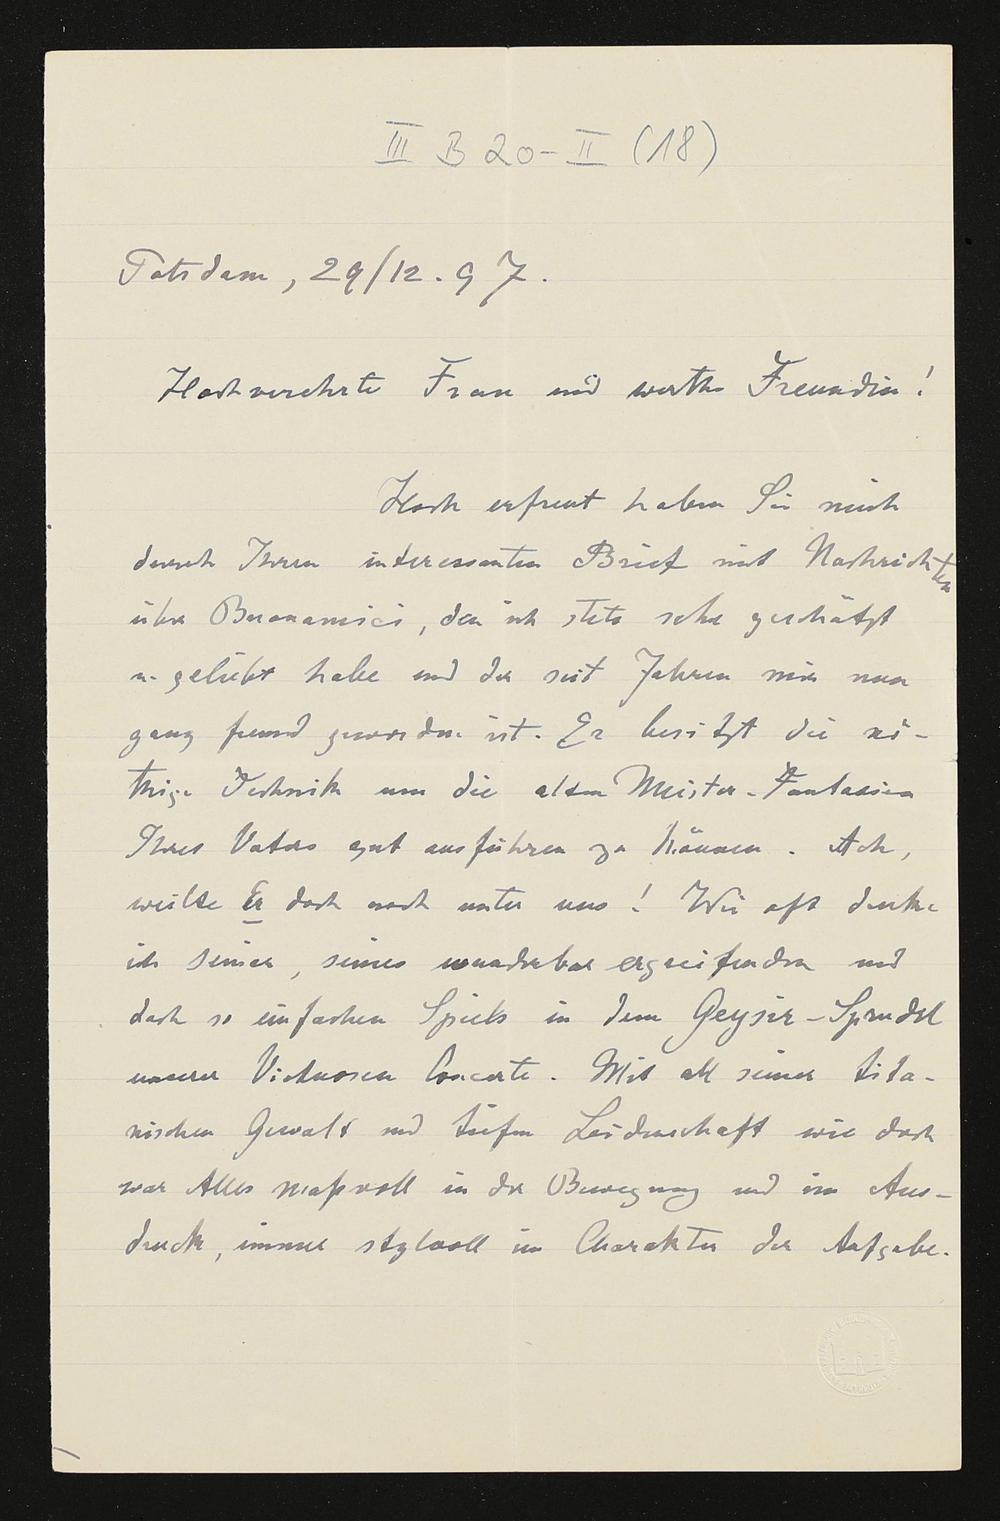 III B 20-II (18)
Potsdam, 29/12. 97.
Hochverehrte Frau und werthe Freundin!
Hoch erfreut haben Sie mich
durch Ihren interessanten Brief mit Nachrichten
über Buonamici, den ich stets sehr geschätzt
u. geliebt habe und der seit Jahren mir nun
ganz fremd geworden ist. Er besitzt die nö-
thige Technik um die alten Meister-Fantasien
Ihres Vaters gut ausführen zu können. Ach,
weilte Er doch noch unter uns! Wie oft denke
ich seiner, seines wunderbar ergreifenden und
doch so einfachen Spiels in dem Geysir-Sprudel
unserer Virtuosen Concerte. Mit all seiner tita-
nischen Gewalt und tiefen Leidenschaft wie doch
war Alles maßvoll in der Bewegung und im Aus-
druck, immer stylvoll im Charakter der Aufgabe.